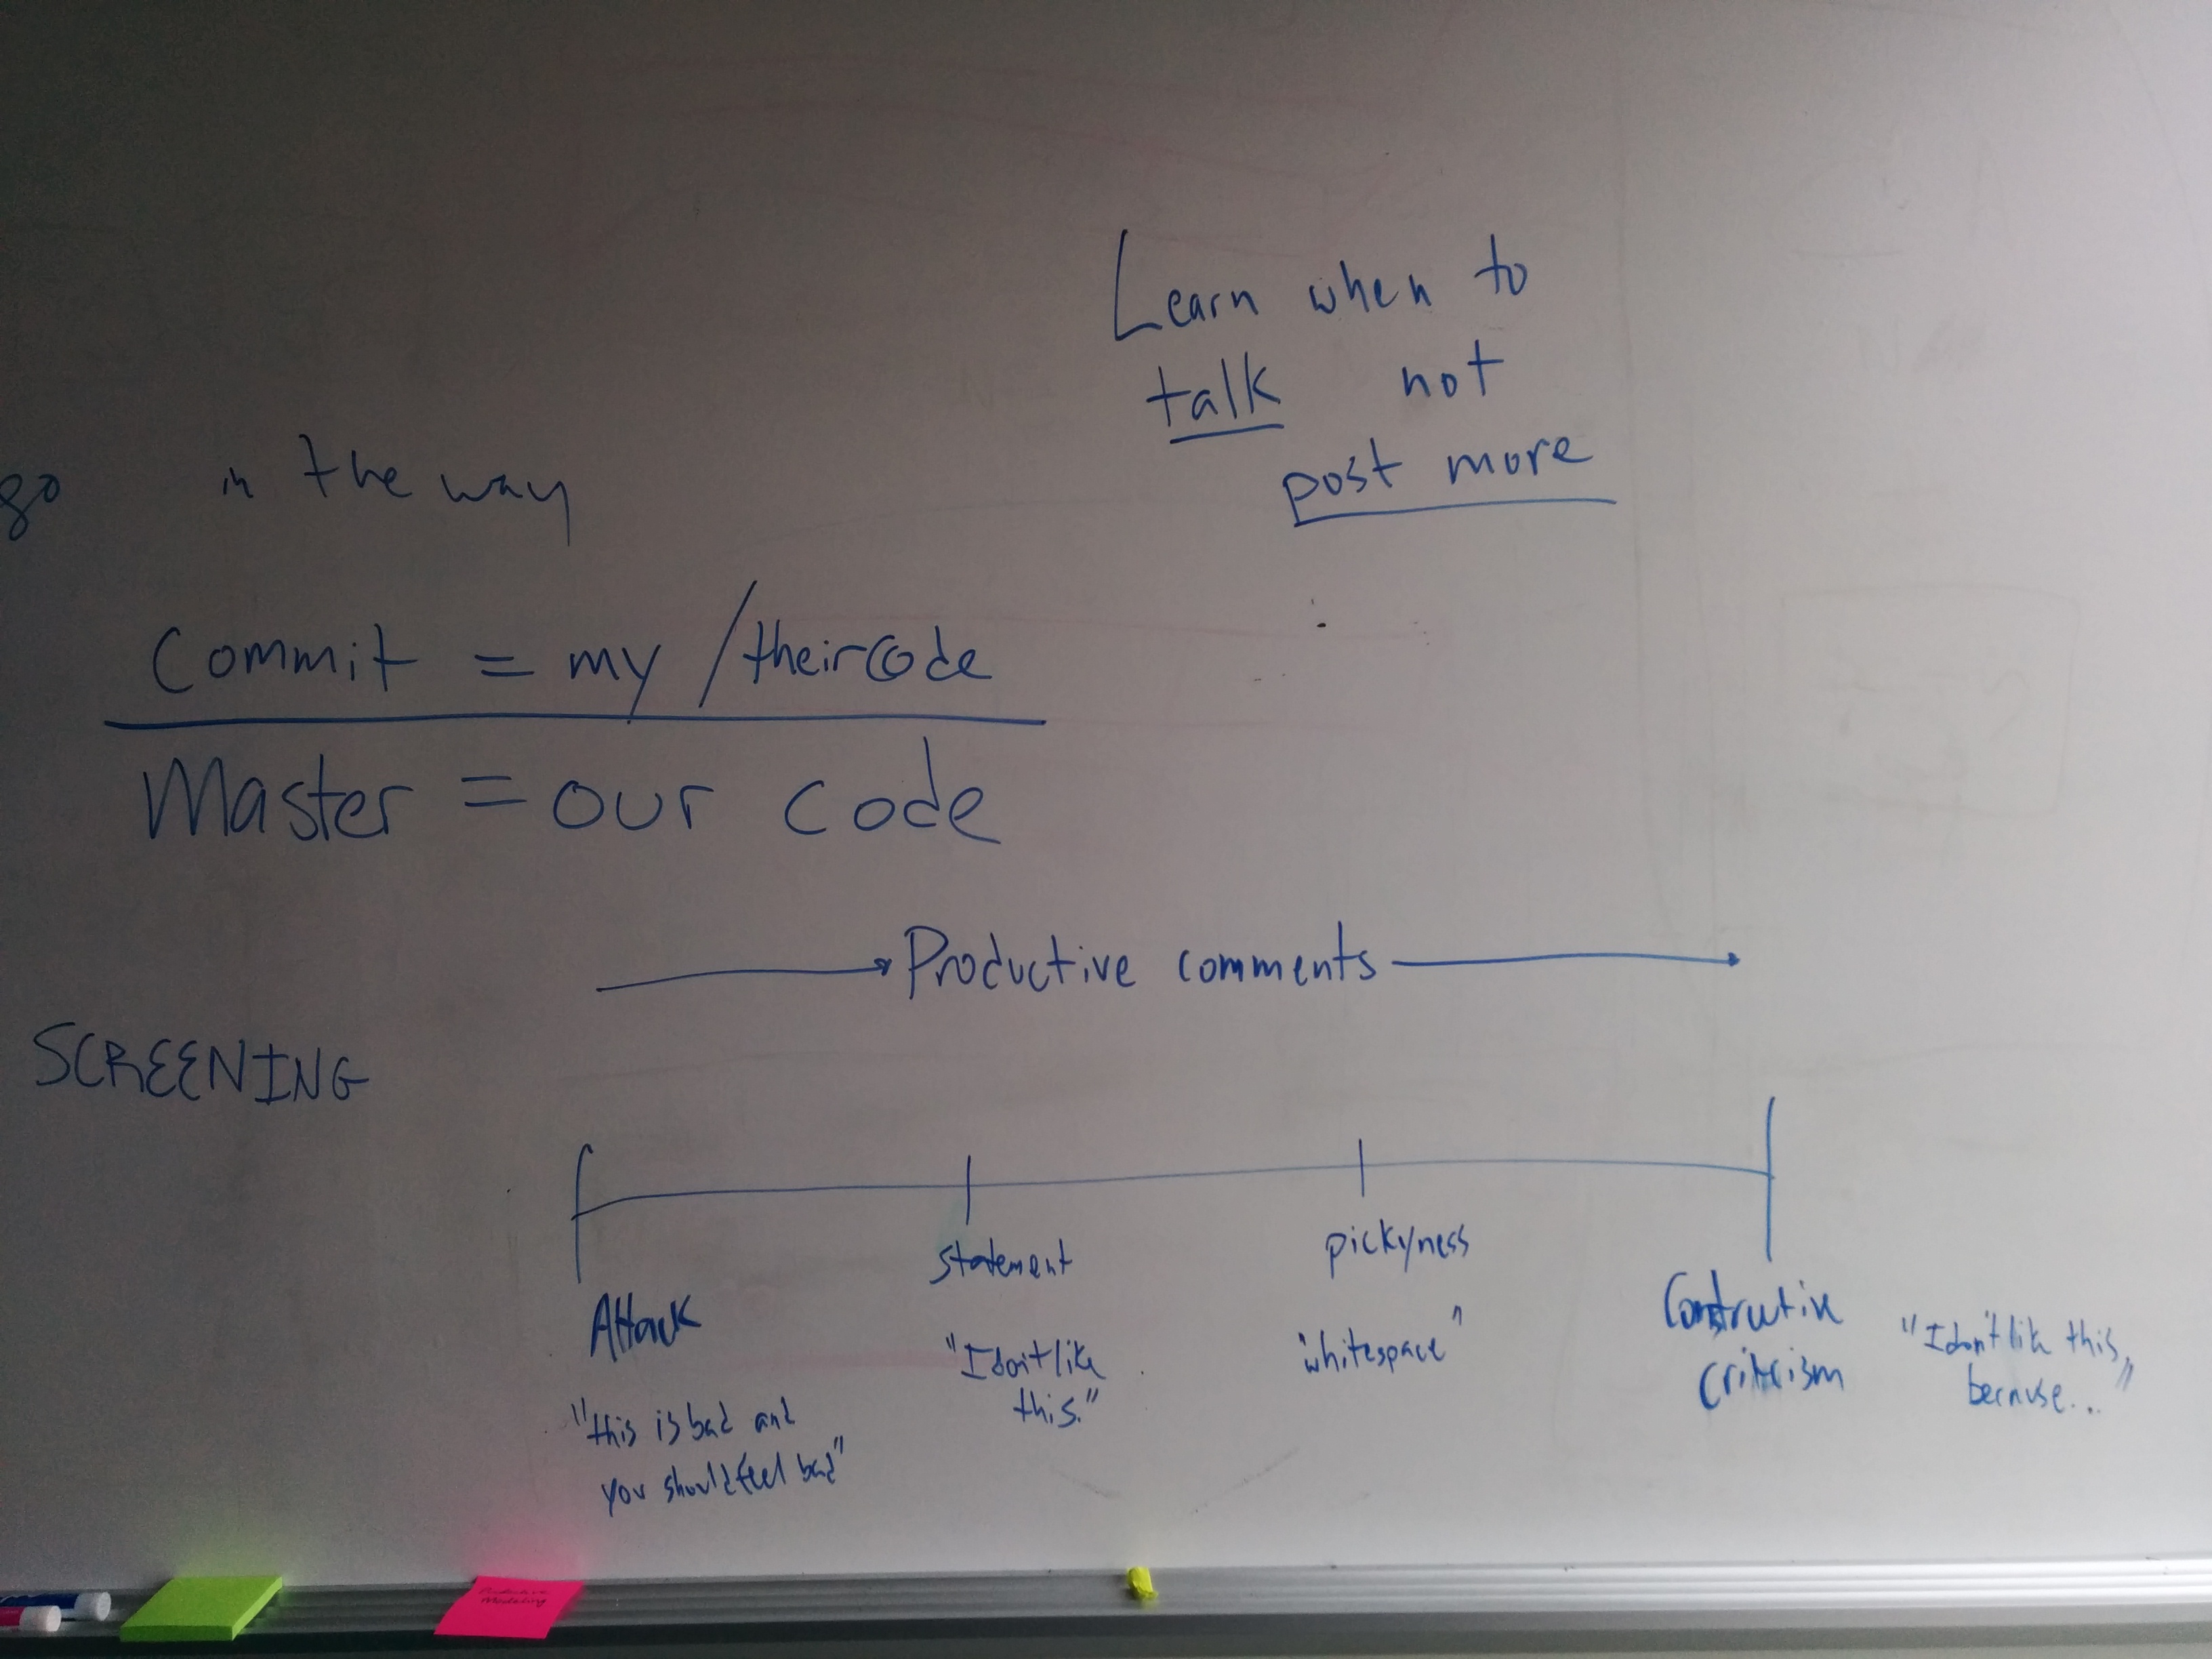 Learn when to
talk not
post more
go in the way
Commit = my / their code
Master = our code
Productive comments
SCREENING
Attack
"this is bad and
you should feel bad"
statement
"I don't like
this."
pickyness
"whitespace"
Constructive
criticism
"I don't like this,
because..."